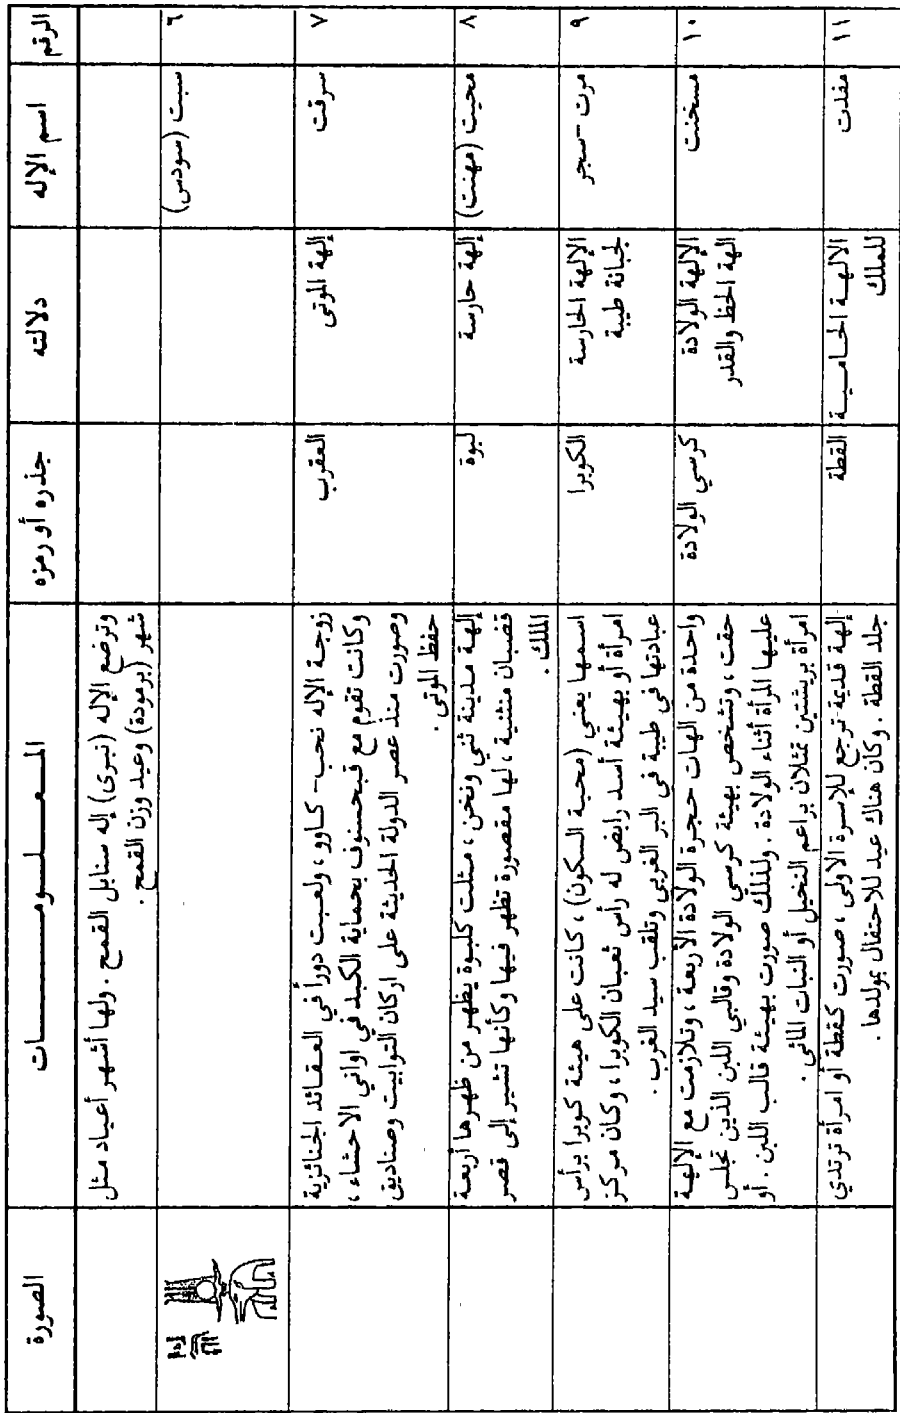 الرقم
اسم الإله
دلالته
جذره أو رمزه
المعلومات
الصورة
وترضع الإله (نبرى) إله سنابل القمح . ولها أشهر أعياد مثل
شهر (برمودة) وعيد وزن القمح .
٦
سبت (سودس)
٧
سرقت
إلهة الموتى
العقرب
زوجة الإله نحب - كاوو ، ولعبت دوراً في العقائد الجنائزية
وكانت تقوم مع قبحسنوف بحماية الكبد في اواني الاحشاء ،
وصورت منذ عصر الدولة الحديثة على اركان التوابيت وصناديق
حفظ الموتى .
٨
محيت (مهنت)
إلهة حارسة
لبوة
إلهة مدينة ثني ونخن ، مثلت كلبوة يظهر من ظهرها أربعة
قضبان منثنية ، لها مقصورة تظهر فيها وكأنها تشير إلى قصر
الملك .
٩
مرت - سجر
الإلهة الحارسة
لجبانة طيبة
الكوبرا
اسمها يعني (محبة السكون) ، كانت على هيئة كوبرا برأس
امرأة أو بهيئة أسد رابض له رأس ثعبان الكوبرا ، وكان مركز
عبادتها في طيبة في البر الغربي وتلقب سيد الغرب .
١٠
مسخنت
الإلهة الولادة
الهة الحظ والقدر
كرسي الولادة
واحدة من الهات حجرة الولادة الأربعة ، وتلازمت مع الإلهة
حقت ، وتشخص بهيئة كرسي الولادة وقالبي اللبن الذين تجلس
عليها المرأة أثناء الولادة . ولذلك صورت بهيئة قالب اللبن . أو
امرأة بريشتين تمثلان براعم النخيل أو النبات المائي .
١١
مفدت
الالهة الحامية
للملك
القطة
إلهة قديمة ترجع للاسرة الاولى ، صورت كقطة أو امرأة ترتدي
جلد القطة . وكان هناك عيد للاحتفال بمولدها .